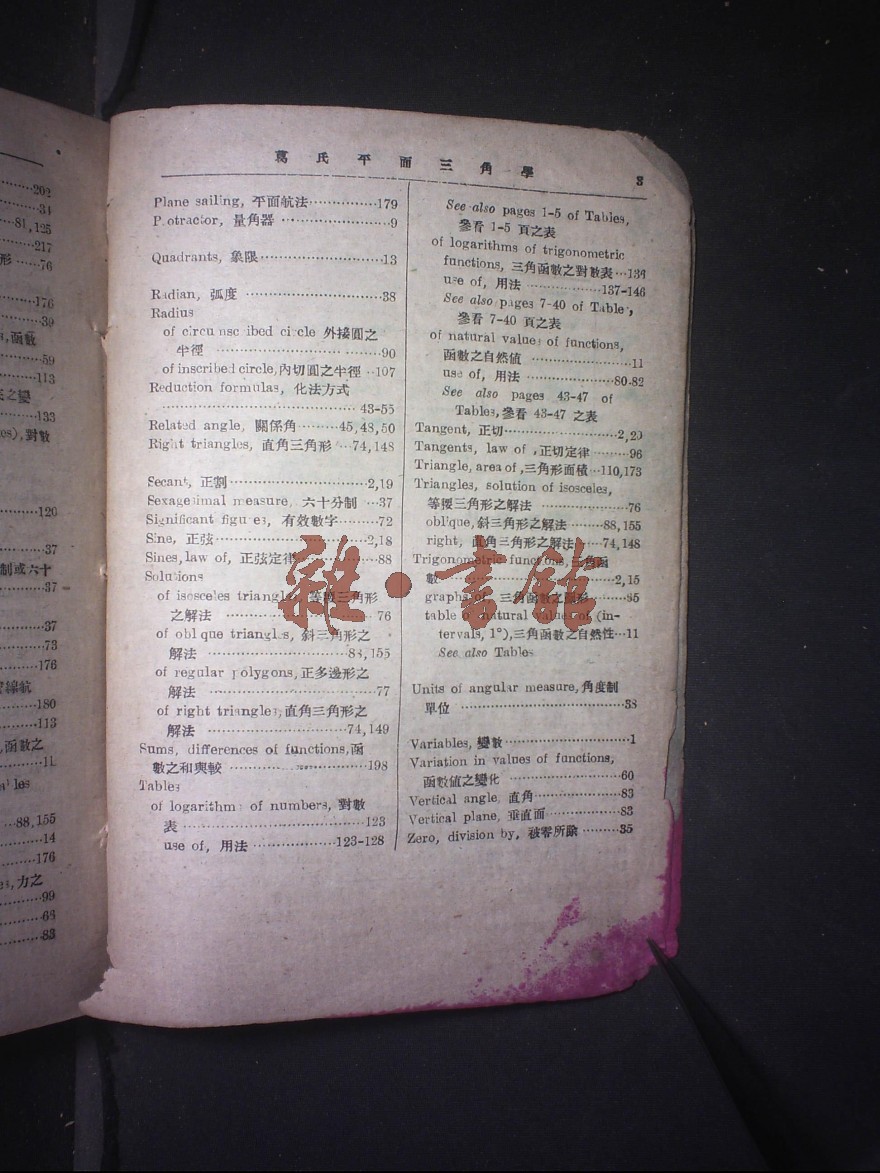 葛氏平面三角學 3
202
34
81,125
217
形 ⋯76
176
39
函數
59
113
之變
133
對數
120
37
制或六十
37
37
73
176
180
113
函數之
11
les
88,155
14
176
力之
99
63
83
Plane sailing, 平面航法⋯⋯⋯⋯⋯179
P.otractor, 量角器 ⋯⋯⋯⋯⋯9
Quadrants, 象限⋯⋯⋯⋯⋯13
Radian, 弧度 ⋯⋯⋯⋯⋯38
Radius
of circumscribed circle 外接圓之
半徑 ⋯⋯⋯⋯⋯90
of inscribed circle,內切圓之半徑 ··107
Reduction formulas, 化法方式
⋯⋯⋯⋯⋯43-55
Related angle, 關係角⋯⋯⋯45,48,50
Right triangles, 直角三角形 ⋯74,148
Secant, 正割⋯⋯⋯⋯⋯2,19
Sexagesimal measure, 六十分制 ⋯37
Significant figures, 有效數字⋯⋯⋯72
Sine, 正弦⋯⋯⋯⋯⋯2,18
Sines, law of, 正弦定律⋯⋯⋯88
Solutions
of isosceles triangles, 等腰三角形
之解法 ⋯⋯⋯⋯⋯76
of oblique triangles, 斜三角形之
解法 ⋯⋯⋯⋯⋯88,155
of regular polygons,正多邊形之
解法 ⋯⋯⋯⋯⋯77
of right triangles,直角三角形之
解法 ⋯⋯⋯⋯⋯74,149
Sums, differences of functions,函
數之和與較 ⋯⋯⋯⋯⋯198
Tables
of logarithms of numbers, 對數
表⋯⋯⋯⋯⋯123
use of, 用法⋯⋯⋯⋯⋯123-128
See also pages 1-5 of Tables,
參看 1-5 頁之表
of logarithms of trigonometric
functions, 三角函數之對數表⋯136
use of, 用法 ⋯⋯⋯⋯⋯137-146
See also pages 7-40 of Tables,
參看 7-40 頁之表
of natural values of functions,
函數之自然值 ⋯⋯⋯⋯⋯11
use of, 用法 ⋯⋯⋯⋯⋯80-82
See also pages 43-47 of
Tables,參看 43-47 之表
Tangent, 正切⋯⋯⋯⋯⋯2,20
Tangents, law of ,正切定律⋯⋯⋯96
Triangle, area of ,三角形面積⋯110,173
Triangles, solution of isosceles,
等腰三角形之解法 ⋯⋯⋯⋯⋯76
oblique,斜三角形之解法 ⋯⋯⋯88,155
right, 直角三角形之解法⋯⋯74,148
Trigonometric functions, 三角函
數 ⋯⋯⋯⋯⋯2,15
graphs of, 三角函數之圖形⋯⋯⋯85
table of natural values of (in-
tervals, 1°),三角函數之自然性⋯11
See also Tables
Units of angular measure,角度制
單位 ⋯⋯⋯⋯⋯38
Variables, 變數⋯⋯⋯⋯⋯1
Variation in values of functions,
函數值之變化 ⋯⋯⋯⋯⋯60
Vertical angle, 直角⋯⋯⋯⋯⋯83
Vertical plane, 垂直面⋯⋯⋯⋯⋯83
Zero, division by, 被零所除 ⋯⋯⋯35
雜·書館